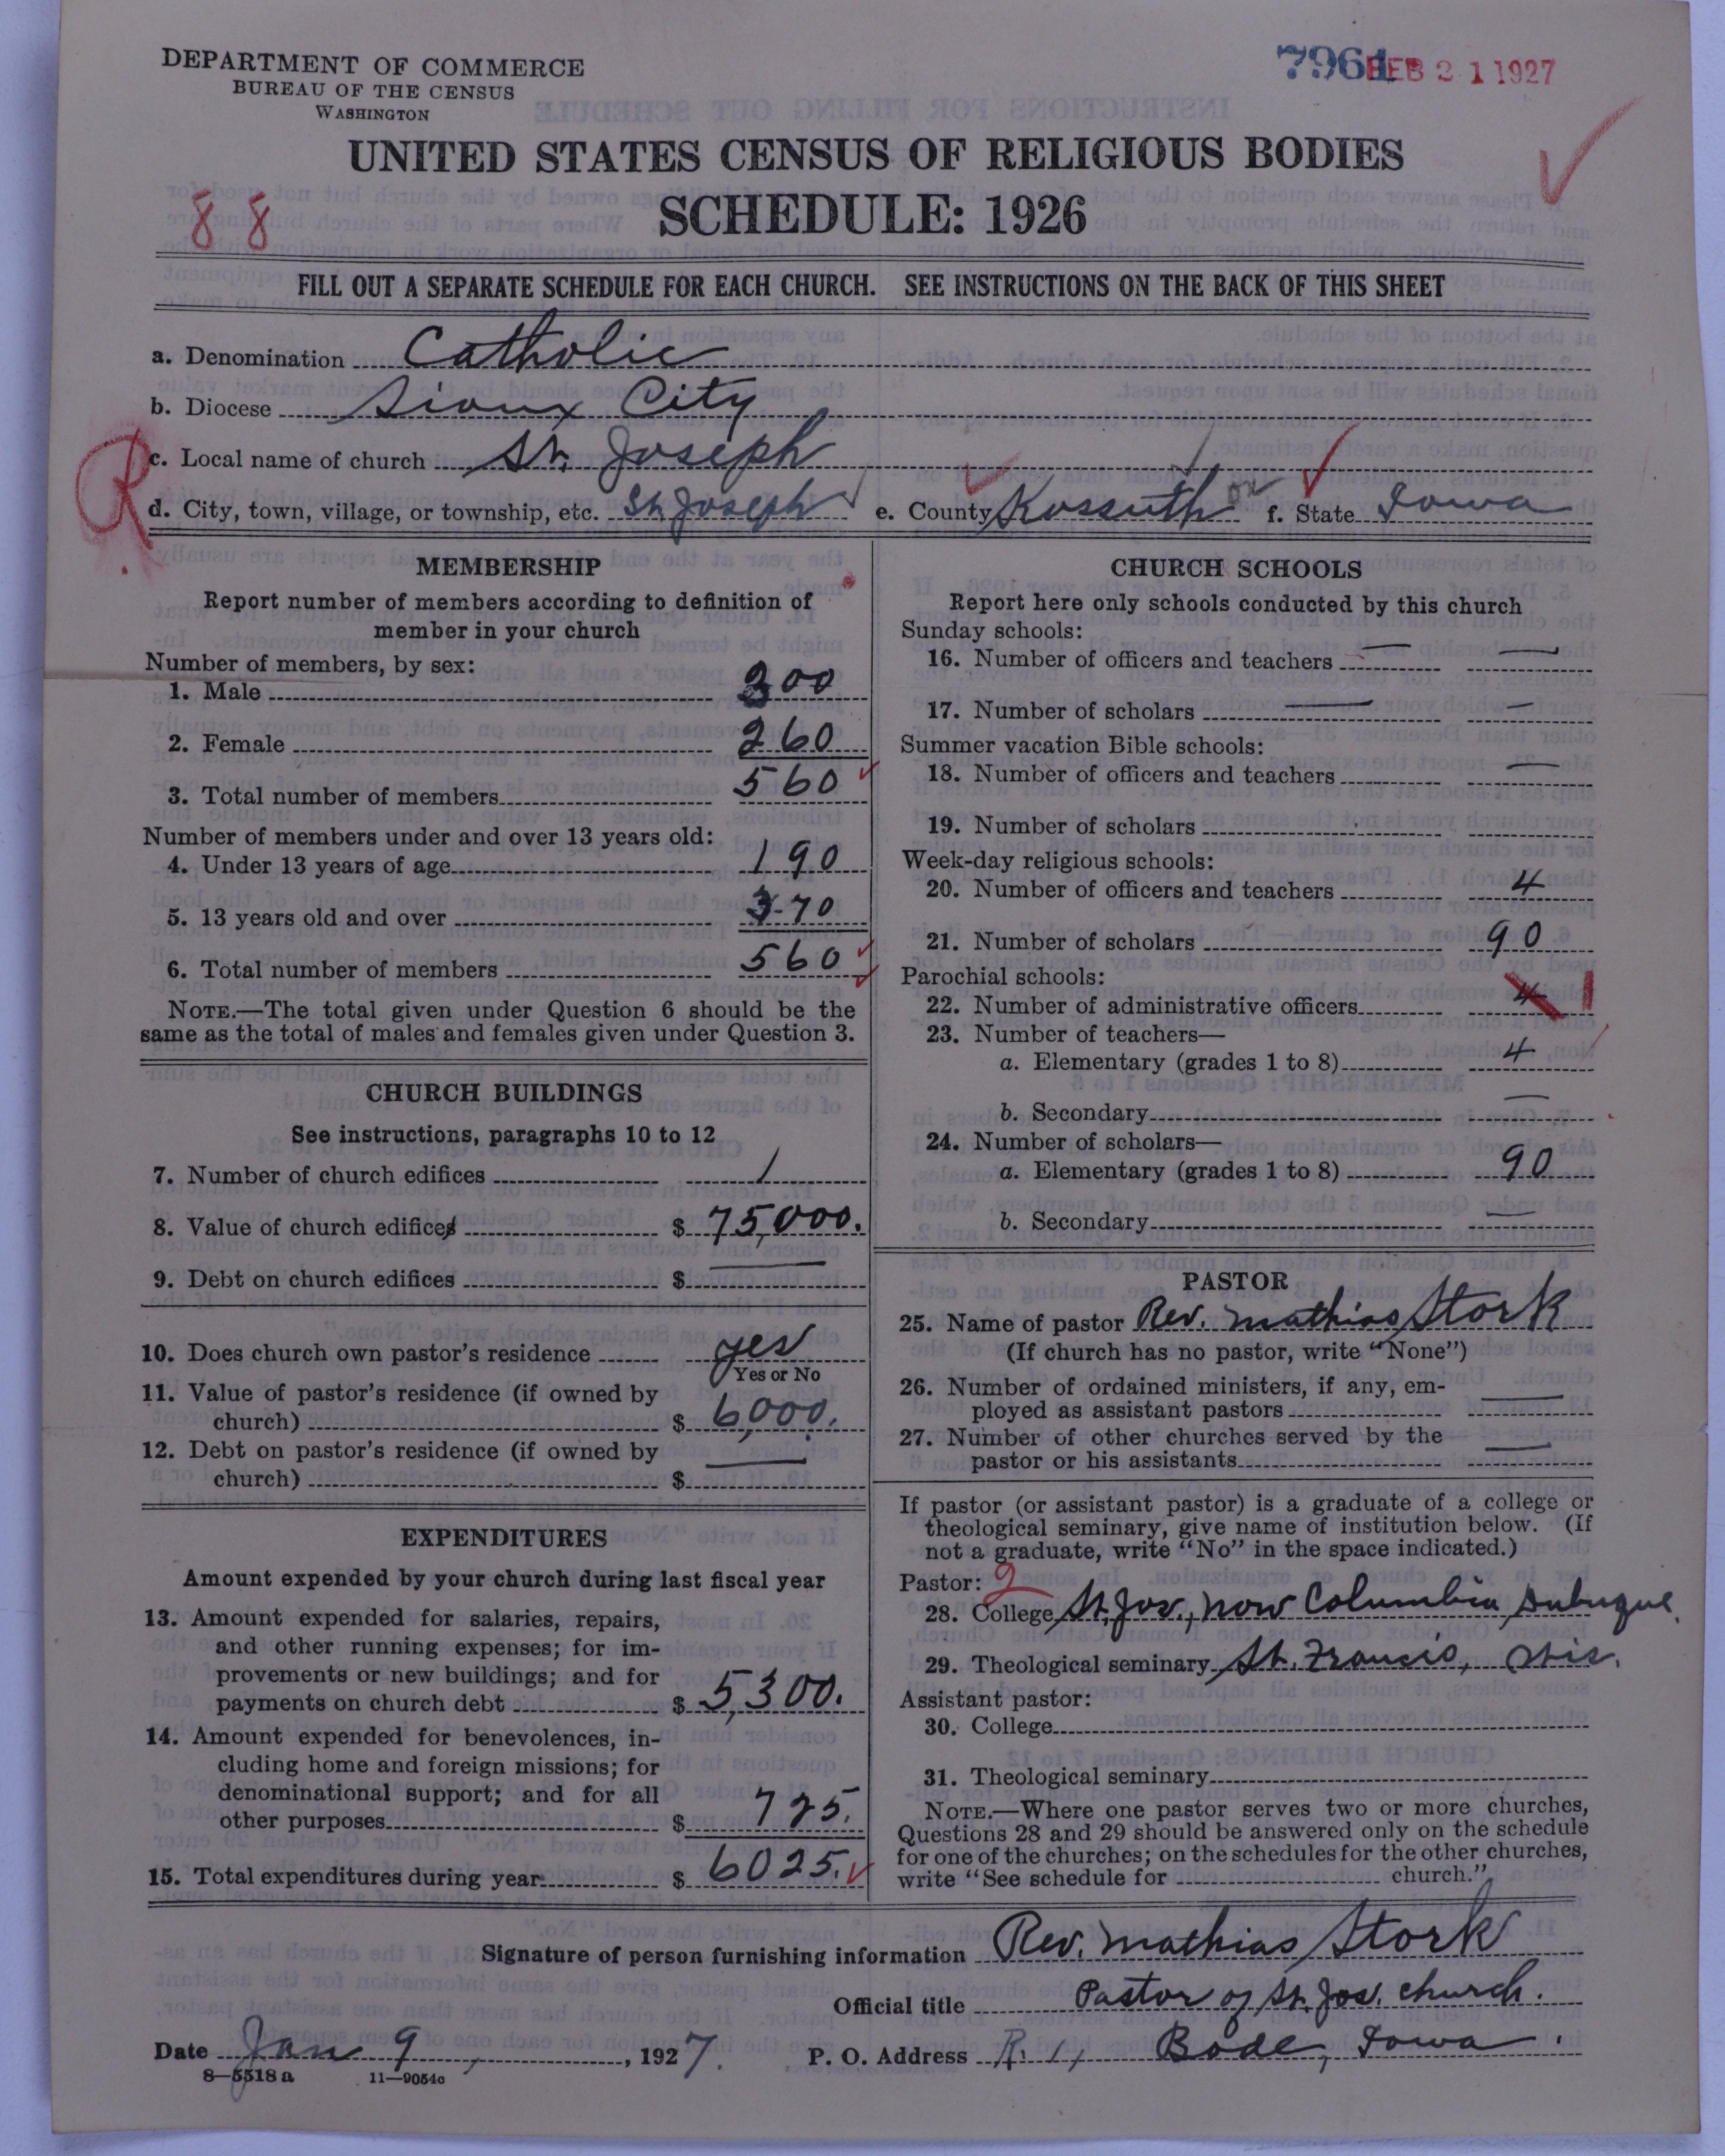 DEPARTMENT OF COMMERCE
BUREAU OF THE CENSUS
WASHINGTON
7961 FEB 21 1927
UNITED STATES CENSUS OF RELIGIOUS BODIES
SCHEDULE: 1926
88
FILL OUT A SEPARATE SCHEDULE FOR EACH CHURCH. SEE INSTRUCTIONS ON THE BACK OF THIS SHEET
a. Denomination Catholic
b. Diocese Sioux City
R
c. Local name of church St. Joseph
d. City, town, village, or township, etc. St. Joseph e. County Kossuth f. State Iowa
MEMBERSHIP
Report number of members according to definition of
member in your church
Number of members, by sex:
1. Male 300
2. Female 260
3. Total number of members 560
Number of members under and over 13 years old:
4. Under 13 years of age 190
5. 13 years old and over 370
6. Total number of members 560
NOTE.—The total given under Question 6 should be the
same as the total of males and females given under Question 3.
CHURCH BUILDINGS
See instructions, paragraphs 10 to 12
7. Number of church edifices 1
8. Value of church edifices $ 75,000.
9. Debt on church edifices $ —
10. Does church own pastor's residence yes
Yes or No
11. Value of pastor's residence (if owned by
church) $ 6,000.
12. Debt on pastor's residence (if owned by
church) $ —
EXPENDITURES
Amount expended by your church during last fiscal year
13. Amount expended for salaries, repairs,
and other running expenses; for im-
provements or new buildings; and for
payments on church debt $ 5,300.
14. Amount expended for benevolences, in-
cluding home and foreign missions; for
denominational support; and for all
other purposes $ 725.
15. Total expenditures during year $ 6025.
CHURCH SCHOOLS
Report here only schools conducted by this church
Sunday schools:
16. Number of officers and teachers —
17. Number of scholars —
Summer vacation Bible schools:
18. Number of officers and teachers —
19. Number of scholars
Week-day religious schools:
20. Number of officers and teachers 4
21. Number of scholars 90
Parochial schools:
22. Number of administrative officers 4 1
23. Number of teachers—
a. Elementary (grades 1 to 8) 4
b. Secondary —
24. Number of scholars—
a. Elementary (grades 1 to 8) 90
b. Secondary —
PASTOR
25. Name of pastor Rev. Mathias Stork
(If church has no pastor, write "None")
26. Number of ordained ministers, if any, em-
ployed as assistant pastors —
27. Number of other churches served by the
pastor or his assistants —
If pastor (or assistant pastor) is a graduate of a college or
theological seminary, give name of institution below. (If
not a graduate, write "No" in the space indicated.)
Pastor: 2
28. College St. Jos., now Columbia Dubuque.
29. Theological seminary St. Francis, Wis.
Assistant pastor:
30. College
31. Theological seminary
NOTE.—Where one pastor serves two or more churches,
Questions 28 and 29 should be answered only on the schedule
for one of the churches; on the schedules for the other churches,
write "See schedule for church."
Signature of person furnishing information Rev. Mathias Stork
Official title Pastor of St. Jos. church.
Date Jan 9, 1927. P. O. Address R. 1, Bode, Iowa.
8—5518a 11—9054c